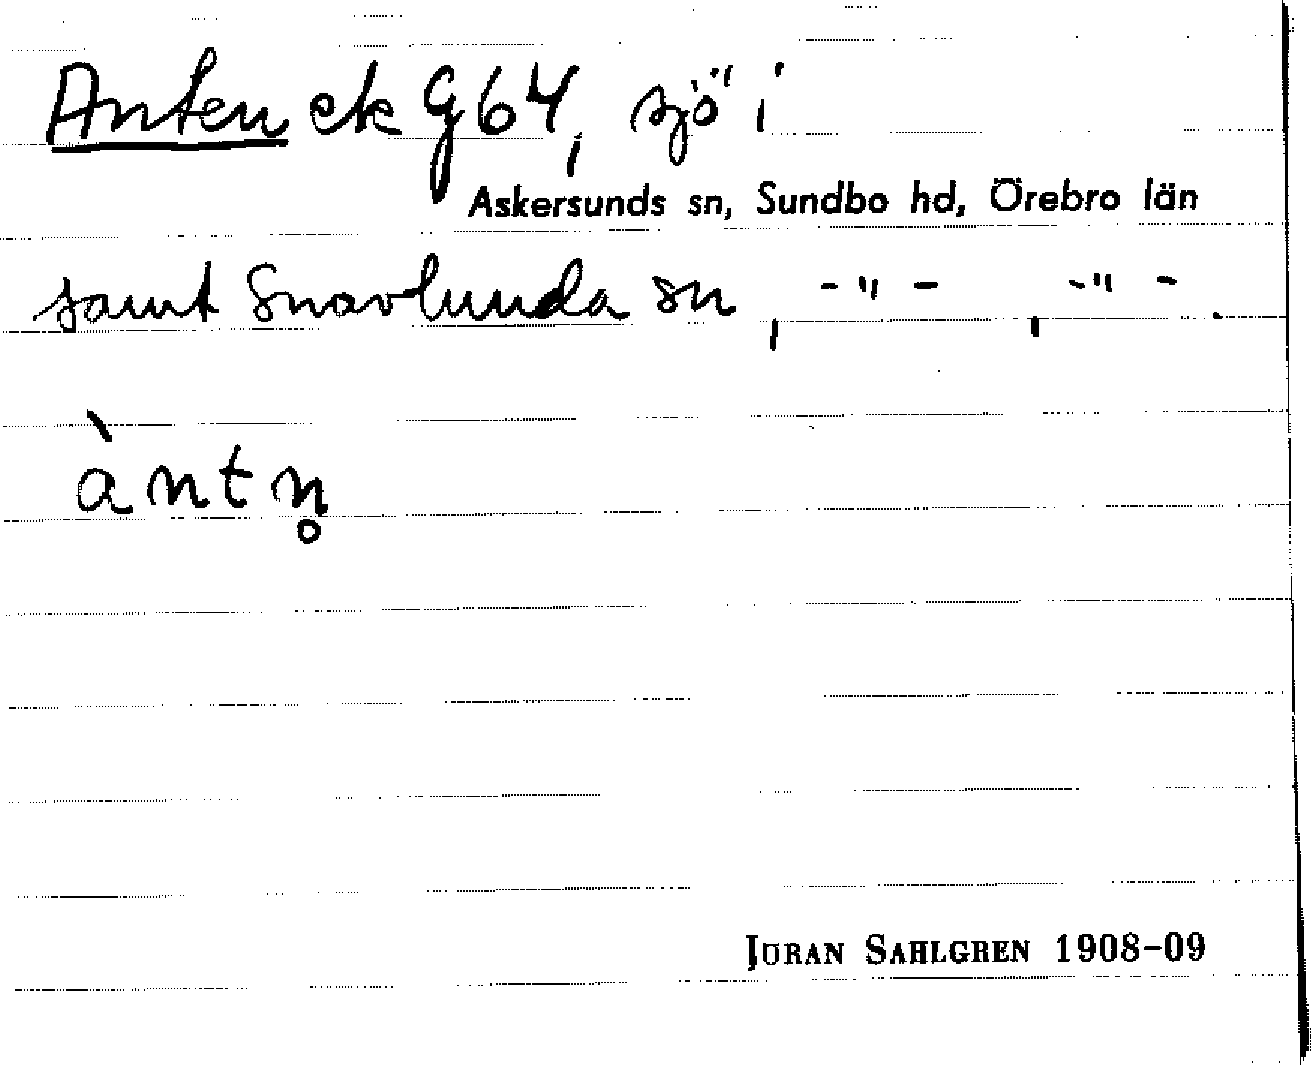 Anten ek G64, sjö i
Askersunds sn, Sundbo hd, Örebro län
samt Snavlunda sn, -"-, -"-.
àntn̥
JÖRAN SAHLGREN 1908-09